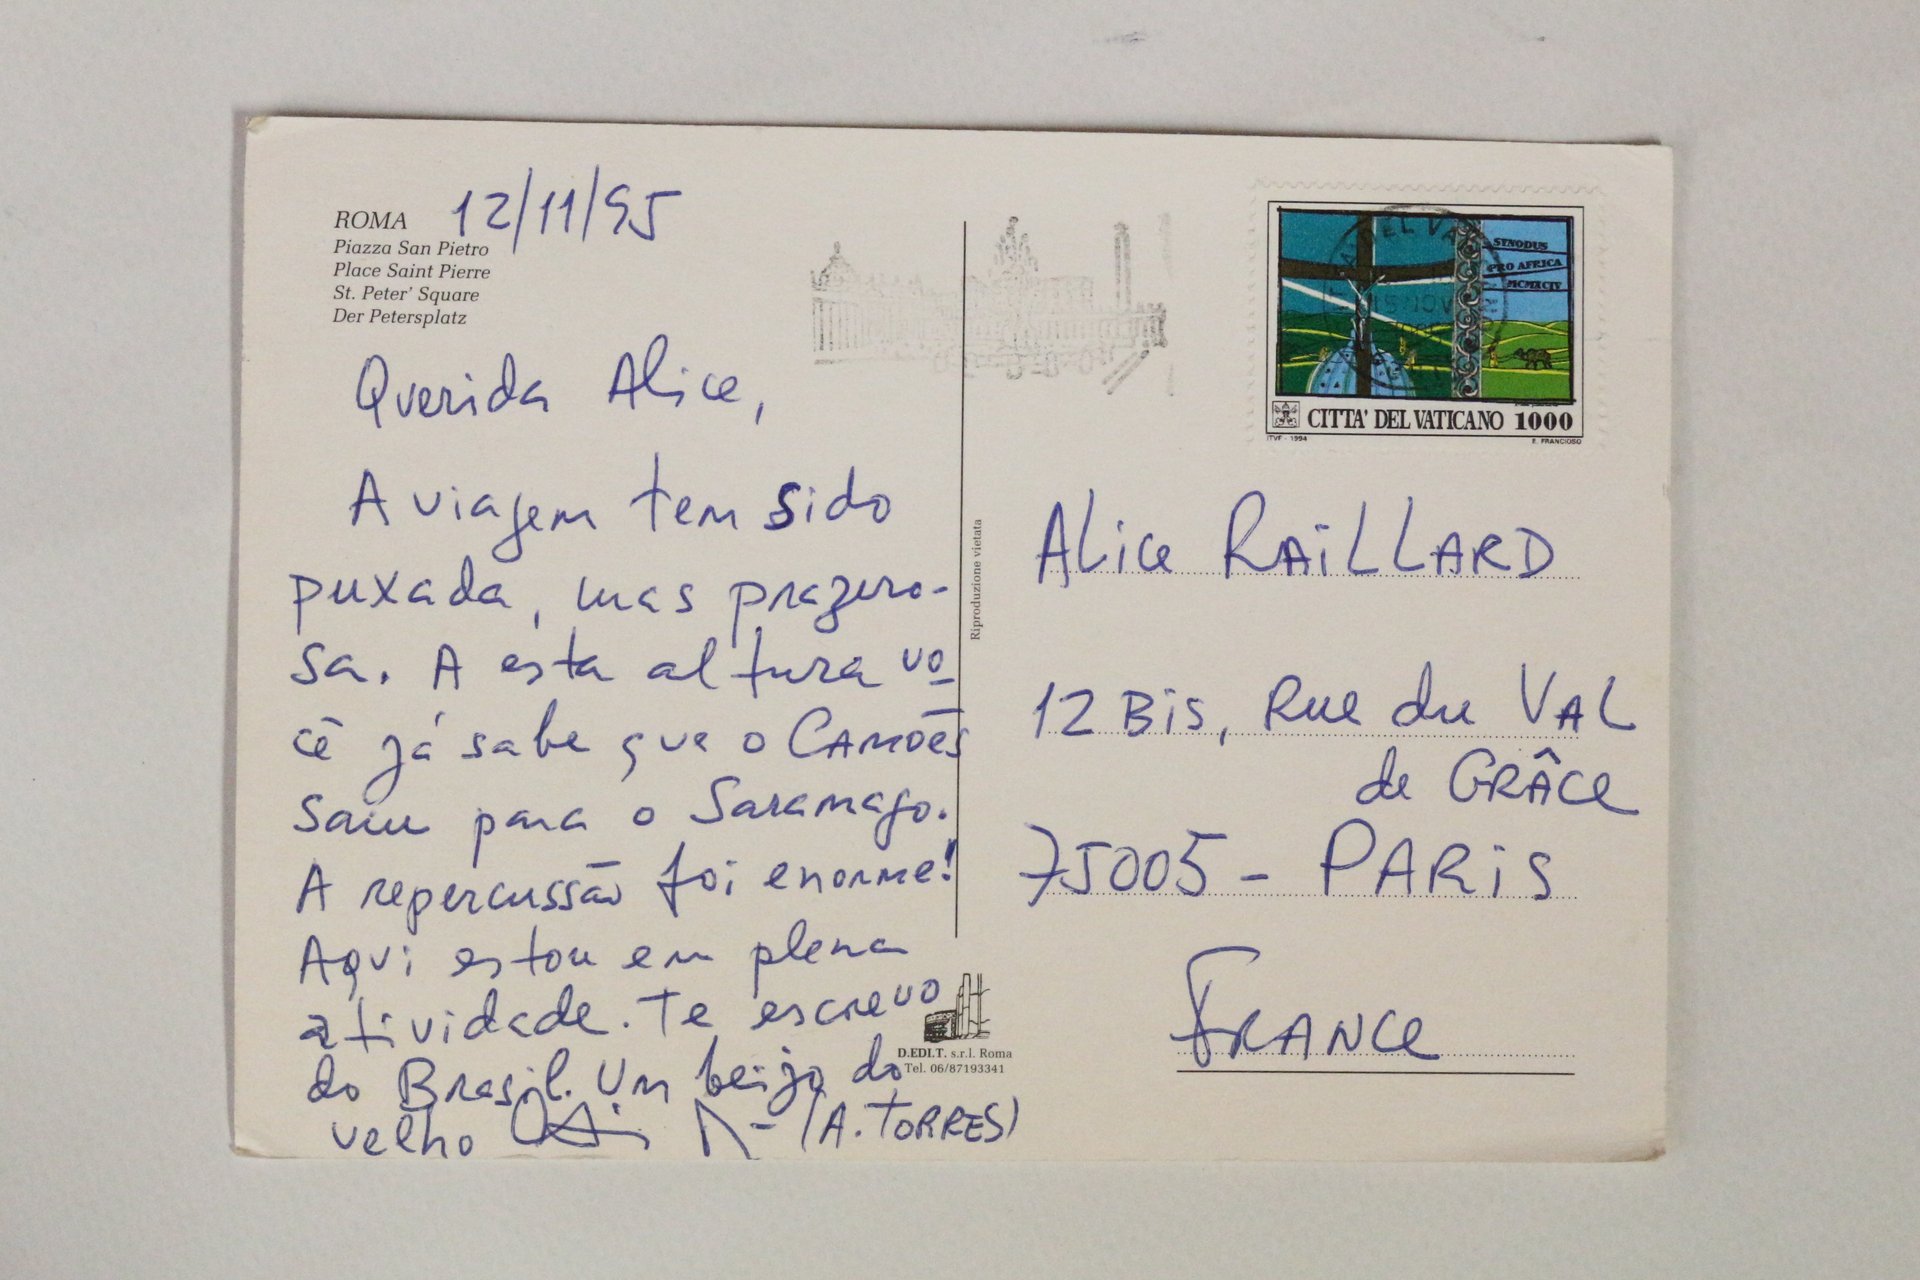 ROMA
Piazza San Pietro
Place Saint Pierre
St. Peter' Square
Der Petersplatz
12/11/95
Querida Alice,
A viagem tem sido
puxada, mas prazero-
sa. A esta altura vo
cê já sabe que o CAMÕES
saiu para o Saramago.
A repercussão foi enorme!
Aqui estou em plena
atividade. Te escrevo
do Brasil. Um beijo do
velho (A. TORRES)
Riproduzione vietata
D.EDI.T. s.r.l. Roma
Tel. 06/87193341
SYNODUS
PRO AFRICA
MCMXCIV
CITTA' DEL VATICANO 1000
ITVF - 1994 E. FRANCIOSO
Alice RAILLARD
12 Bis, Rue du VAL
de GRÂCE
75005 - PARIS
FRANCE